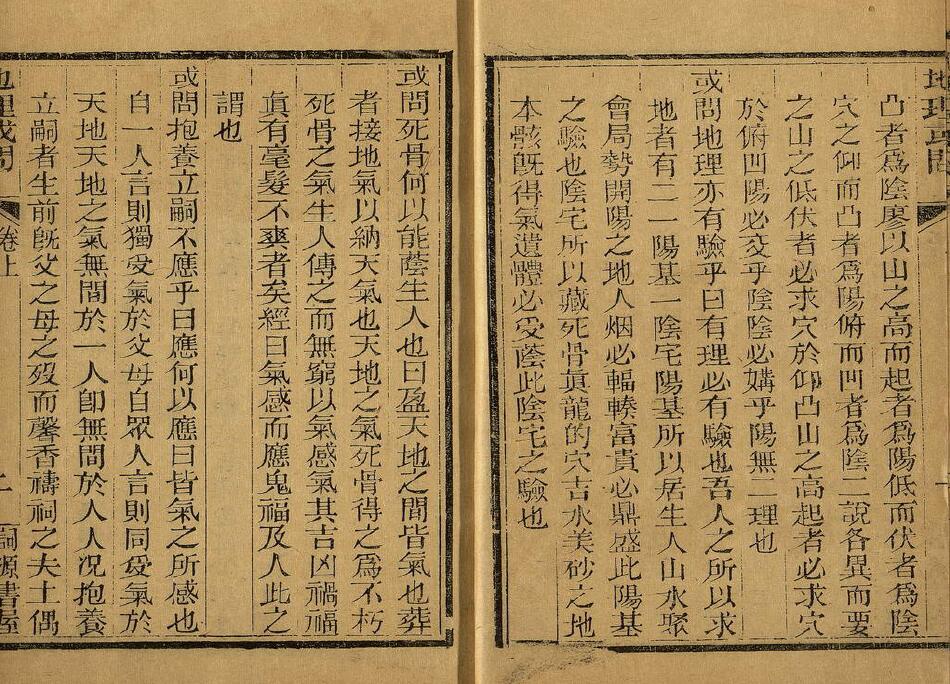 地理或問
凸者爲陰廖以山之高而起者爲陽低而伏者爲陰
穴之仰而凸者爲陽俯而凹者爲陰二說各異而要
之山之低伏者必求穴於仰凸山之高起者必求穴
於俯凹陽必交乎陰陰必媾乎陽無二理也
或問地理亦有驗乎曰有理必有驗也吾人之所以求
地者有二一陽基一陰宅陽基所以居生人山水聚
會局勢開陽之地人烟必輻輳富貴必鼎盛此陽基
之驗也陰宅所以藏死骨眞龍的穴吉水美砂之地
本骸旣得氣遺體必受蔭此陰宅之驗也
或問死骨何以能蔭生人也曰盈天地之間皆氣也葬
者接地氣以納天氣也天地之氣死骨得之爲不朽
死骨之氣生人傳之而無窮以氣感氣其吉凶禍福
眞有毫髮不爽者矣經曰氣感而應鬼福及人此之
謂也
或問抱養立嗣不應乎曰應何以應曰皆氣之所感也
自一人言則獨受氣於父母自眾人言則同受氣於
天地天地之氣無間於一人卽無間於人人况抱養
立嗣者生前旣父之母之歿而馨香禱祠之夫土偶
地理或問 卷上 詞源書屋